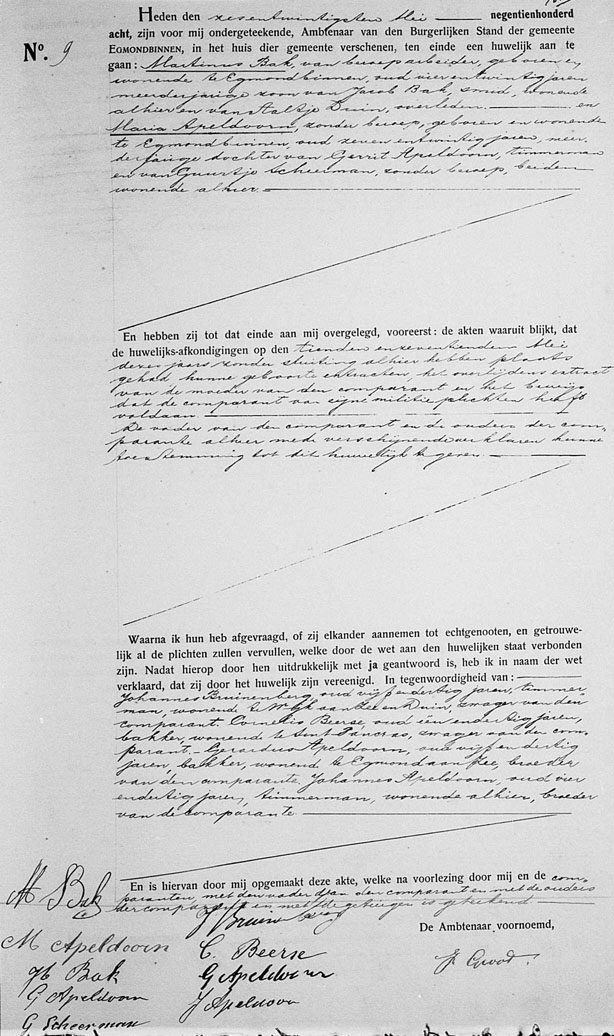 Nº. 9
Heden den zevenentwintigsten Mei negentienhonderd
acht, zijn voor mij ondergeteekende, Ambtenaar van den Burgerlijken Stand der gemeente
EGMONDBINNEN, in het huis dier gemeente verschenen, ten einde een huwelijk aan te
gaan: Martinus Bak, van beroep arbeider, geboren en
wonende te Egmondbinnen, oud vier entwintig jaren
meerderjarige zoon van Jacob Bak, smid, wonende
alhier en van Aaltje Duin, overleden. en
Maria Apeldoorn, zonder beroep, geboren en wonende
te Egmondbinnen, oud zeven entwintig jaren, meer-
derjarige dochter van Gerrit Apeldoorn, timmerman
en van Guurtje Scheerman, zonder beroep, beiden
wonende alhier.
En hebben zij tot dat einde aan mij overgelegd, vooreerst: de akten waaruit blijkt, dat
de huwelijks-afkondigingen op den tienden en zeventienden Mei
dezes jaars zonder stuiting alhier hebben plaats
gehad, hunne geboorte extracten, het overlijdens extract
van de moeder van den comparant en het bewijs
dat de comparant aan zijne militie plichten heeft
voldaan.
De vader van den comparant en de ouders der com-
parante alhier mede verschijnende verklaren hunne
toestemming tot dit huwelijk te geven.
Waarna ik hun heb afgevraagd, of zij elkander aannemen tot echtgenooten, en getrouwe-
lijk al de plichten zullen vervullen, welke door de wet aan den huwelijken staat verbonden
zijn. Nadat hierop door hen uitdrukkelijk met ja geantwoord is, heb ik in naam der wet
verklaard, dat zij door het huwelijk zijn vereenigd. In tegenwoordigheid van:
Johannes Bruinenberg, oud vijf endertig jaren, timmer-
man, wonend te Wijk aan Zee en Duin, zwager van den
comparant. Cornelis Beerse, oud een endertig jaren,
bakker, wonend te Sint Pancras, zwager van den com-
parant. Gerardus Apeldoorn, oud vijf en dertig
jaren, bakker, wonend te Egmond aan Zee, broeder
van den comparante, Johannes Apeldoorn, oud vier
endertig jaren, timmerman, wonende alhier, broeder
van de comparante.
En is hiervan door mij opgemaakt deze akte, welke na voorlezing door mij en de com-
paranten, met den vader van den comparant en met de ouders
der comparante en met de getuigen is geteekend
M Bak
M Apeldoorn C. Beerse
Bak G Apeldoorn
G Apeldoorn J Apeldoorn
G Scheerman
De Ambtenaar voornoemd,